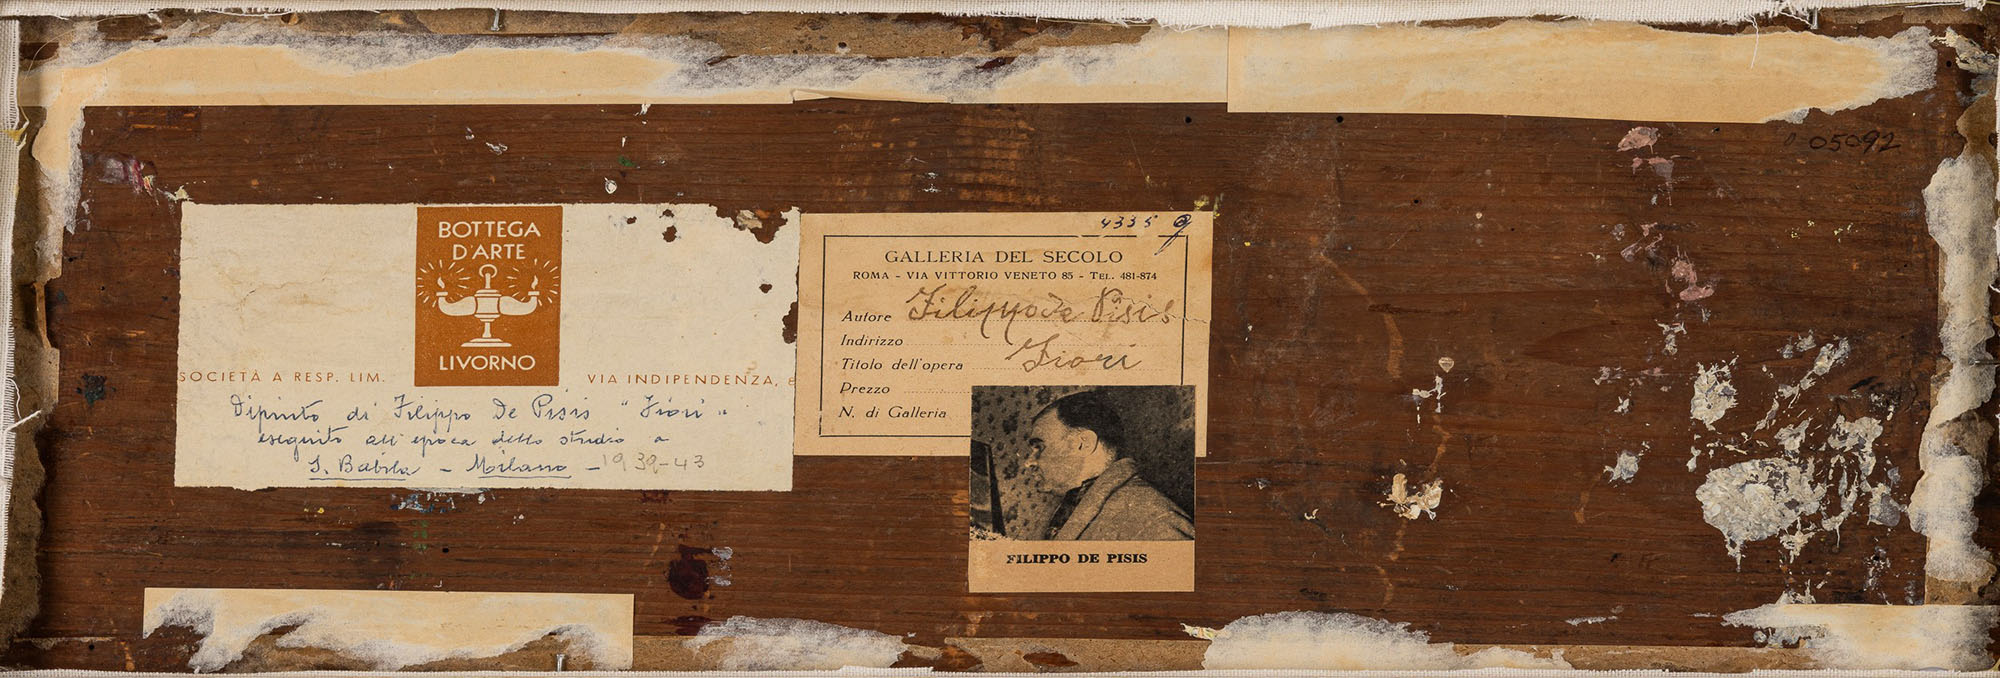 05092
BOTTEGA
D'ARTE
LIVORNO
SOCIETÀ A RESP. LIM.
VIA INDIPENDENZA,
Dipinto di Filippo De Pisis "Fiori"
eseguito all'epoca dello studio a
S. Babila - Milano - 1939-43
4335
GALLERIA DEL SECOLO
ROMA - VIA VITTORIO VENETO 85 - TEL. 481-874
Autore Filippo De Pisis
Indirizzo
Titolo dell'opera Fiori
Prezzo
N. di Galleria
FILIPPO DE PISIS